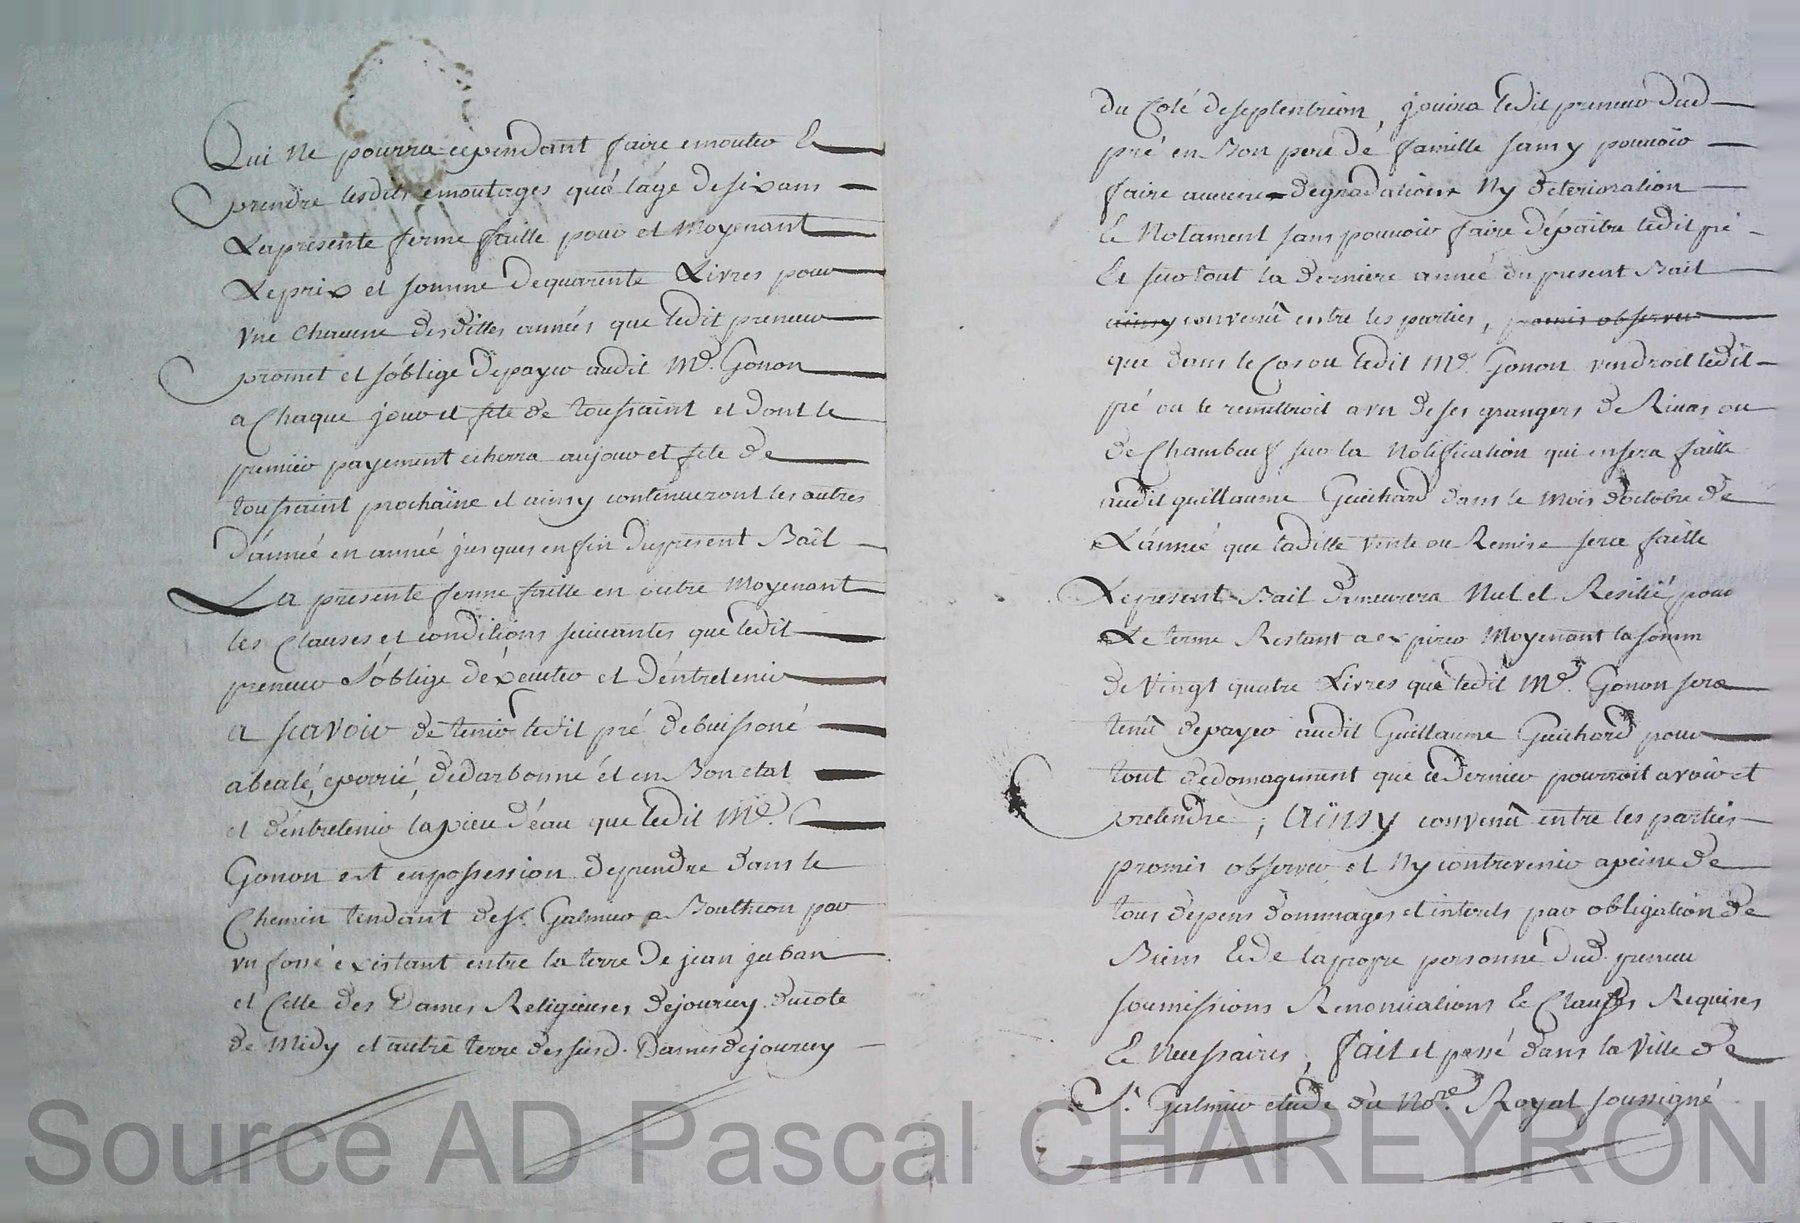 Qui ne pourra cependant faire emouter Et
prendre lesdits emoutages qu'a l'age de six ans
La presente ferme faitte pour et Moyenant
Le prix et somme de quarente Livres pour
vne Chacune desdittes années que ledit preneur
promet et s'oblige de payer audit Mr. Gonon
a Chaque jour et fete de toussaint et dont le
premier payement echerra au jour et fete de
toussaint prochaine et ainsy continueront les autres
d'année en année jusques en fin du present Bail
La presente ferme faitte en outre Moyenant
les Clauses et conditions suivantes que ledit
preneur s'oblige d'éxecuter et d'éntretenir
a scavoir de tenir ledit pré debuissoné
abealé, eporrié, dedarbonné et en Bon etat
et d'éntretenir la prise d'éau que ledit Mr.
Gonon est en possession de prendre dans le
Chemin tendant de St. Galmier a Boutheon par
vn fossé existant entre la terre de jean juban
et Celle des Dames Religieuses de jourcey du coté
de Midy et autre terre des susd. Dames de jourcey
du Coté de septentrion, jouira ledit preneur dud
pré en Bon pere de famille sans y pouvoir
faire aucune degradations Ny deterioration
Et Notament sans pouvoir faire dépaitre ledit pré
Et sur tout la derniere année du present Bail
ainsy convenû entre les parties, promis observer
que dans le Cas ou ledit Mr. Gonon vendroit ledit
pré ou le remettroit a vn de ses grangers de Rivas ou
de Chambeuf sur la Notification qui en sera faitte
audit guillaume Guichard dans le Mois d'octobre de
L'année que laditte vente ou Remise sera faitte
Le present Bail demeurera Nul et Resilié pour
Le terme Restant a expirer Moyenant la somm
de Vingt quatre Livres que ledit Mr. Gonon sera
tenû de payer audit Guillaume Guichard pour
tout dedomagement que ce dernier pourroit avoir et
pretendre; Ainsy convenû entre les parties
promis observer et Ny contrevenir a peine de
tous depens dommages et interets par obligation de
Biens Et de la propre personne dud. preneur
soumissions Renonciations Et Clauses Requises
Et Necessaires, fait et passé dans la Ville de
St. Galmier etude du Nore. Royal soussigné
Source AD Pascal CHAREYRON